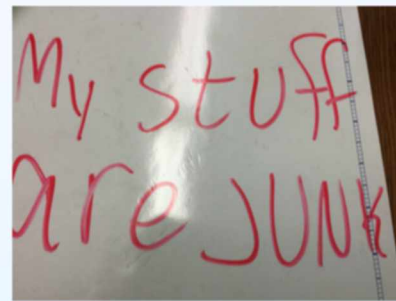 My stuff
are JUNK